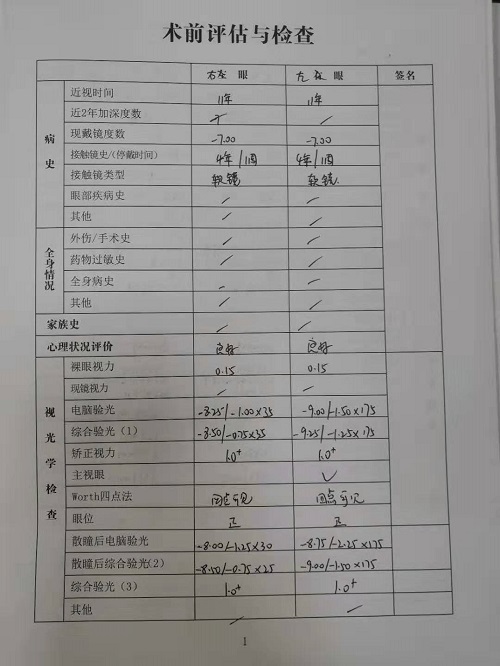 术前评估与检查
右 眼 左 眼 签名
病史
近视时间 11年 11年
近2年加深度数 / /
现戴镜度数 -7.00 -7.00
接触镜史/(停戴时间) 4年/1周 4年/1周
接触镜类型 软镜 软镜
眼部疾病史 / /
其他 / /
全身情况
外伤/手术史 / /
药物过敏史 / /
全身病史 / /
其他 / /
家族史 / /
心理状况评价 良好 良好
视光学检查
裸眼视力 0.15 0.15
现镜视力 / /
电脑验光 -8.25/-1.00×35 -9.00/-1.50×175
综合验光（1） -8.50/-0.75×35 -9.25/-1.25×175
矫正视力 1.0+ 1.0+
主视眼 ✓
Worth四点法 四点可见 四点可见
眼位 正 正
散瞳后电脑验光 -8.00/-1.25×30 -8.75/-2.25×175
散瞳后综合验光(2) -8.50/-0.75×25 -9.00/-1.50×175
综合验光（3） 1.0+ 1.0+
其他 / /
1